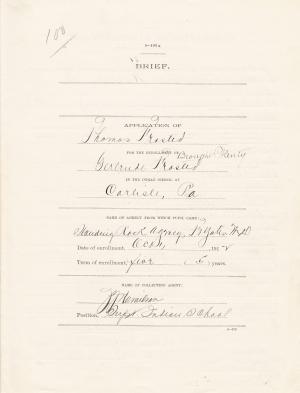 108
5-192a
BRIEF.
APPLICATION OF
Thomas Frosted
FOR THE ENROLLMENT OF
Gertrude Frosted
IN THE INDIAN SCHOOL AT
Carlisle, Pa
NAME OF AGENCY FROM WHICH PUPIL CAME:
Standing Rock Agency, Ft Yates N.D.
Date of enrollment,
Term of enrollment, five (5) years.
NAME OF COLLECTING AGENT:
Position, Supt Indian School